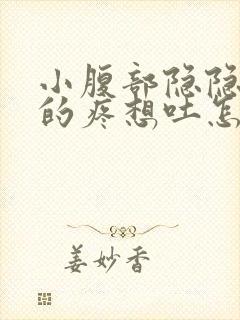 小腹部隐隐
的疼想吐怎
姜妙香